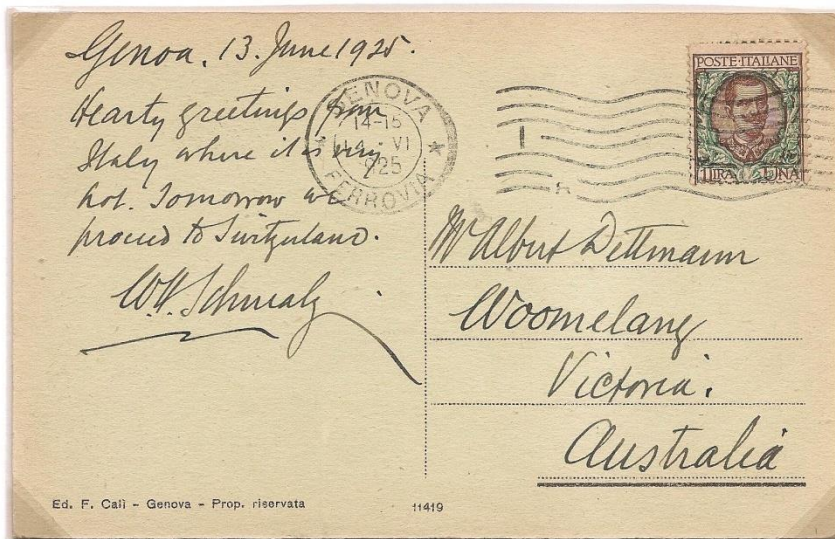 Genoa, 13. June 1925.
Hearty greetings from
Italy where it is very
hot. Tomorrow we
proceed to Switzerland.
W.H. Schmalz
GENOVA
14-15
VI
925
FERROVIA
POSTE·ITALIANE
1 LIRA UNA
Mr Albert Dettmann
Woomelang
Victoria.
Australia
Ed. F. Calì - Genova - Prop. riservata
11419